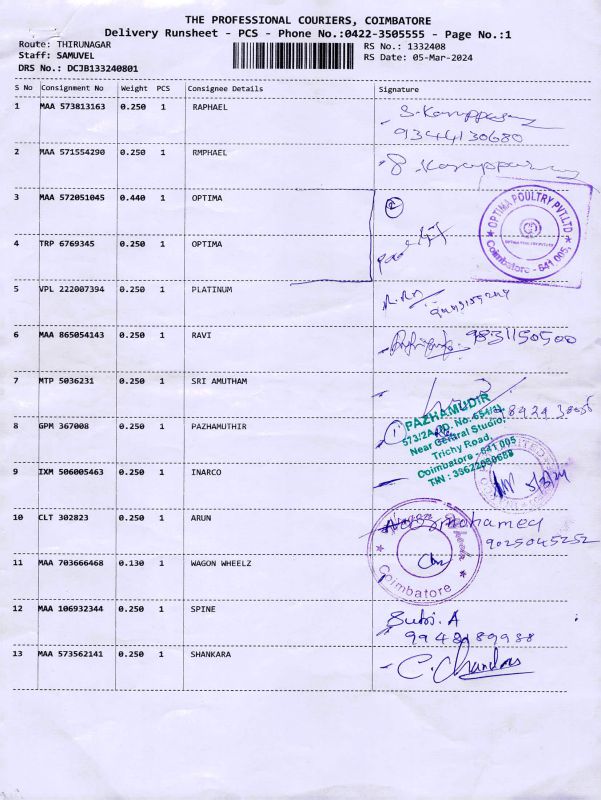 THE PROFESSIONAL COURIERS, COIMBATORE
Delivery Runsheet - PCS - Phone No.:0422-3505555 - Page No.:1
Route: THIRUNAGAR RS No.: 1332408
Staff: SAMUVEL RS Date: 05-Mar-2024
DRS No.: DCJB133240801
S No Consignment No Weight PCS Consignee Details Signature
1 MAA 573813163 0.250 1 RAPHAEL
9344130680
2 MAA 571554290 0.250 1 RMPHAEL
3 MAA 572051045 0.440 1 OPTIMA
OPTIMA POULTRY PVT LTD
Coimbatore - 641 005.
4 TRP 6769345 0.250 1 OPTIMA
5 VPL 222007394 0.250 1 PLATINUM
6 MAA 865054143 0.250 1 RAVI 9831150500
7 MTP 5036231 0.250 1 SRI AMUTHAM
8 GPM 367008 0.250 1 PAZHAMUTHIR
PAZHAMUDIR
573/2A, No. 654/4
Near Central Studio,
Trichy Road,
Coimbatore - 641 005
TIN : 33622080688
9 IXM 506005463 0.250 1 INARCO 5/3/24
10 CLT 302823 0.250 1 ARUN mohamed
9025045252
11 MAA 703666468 0.130 1 WAGON WHEELZ
Coimbatore
12 MAA 106932344 0.250 1 SPINE
9948189988
13 MAA 573562141 0.250 1 SHANKARA C. Chandras